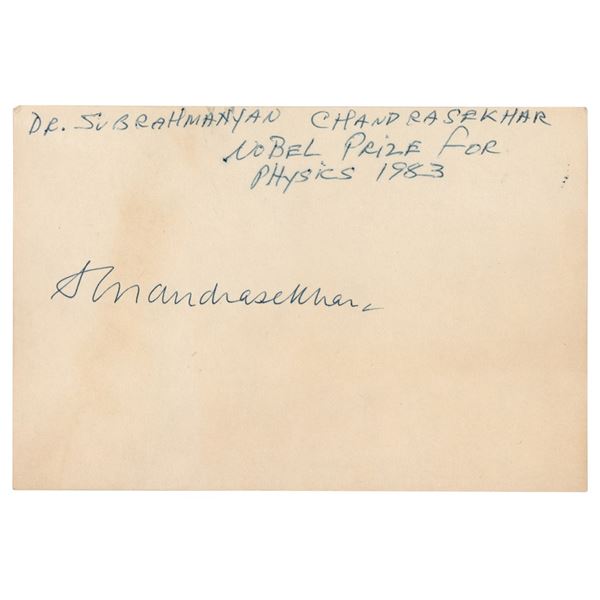 DR. SUBRAHMANYAN CHANDRASEKHAR
NOBEL PRIZE FOR
PHYSICS 1983
S Chandrasekhar